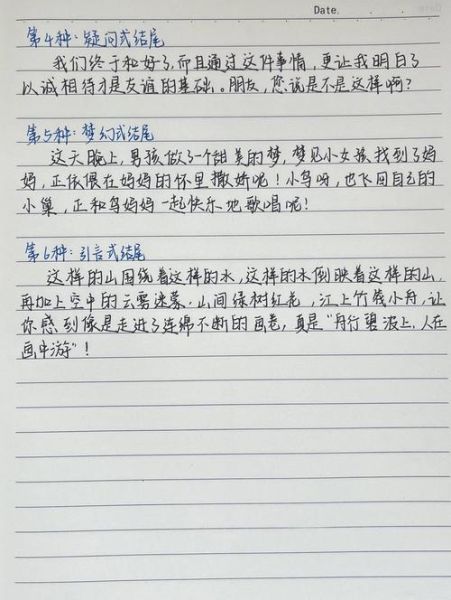 Date.
第4种：疑问式结尾
我们终于和好了，而且通过这件事情，更让我明白了
以诚相待才是友谊的基础。朋友，您说是不是这样啊？
第5种：梦幻式结尾
这天晚上，男孩做了一个甜美的梦，梦见小女孩找到了妈
妈，正依偎在妈妈的怀里撒娇呢！小鸟呀，也飞回自己的
小巢，正和鸟妈妈一起快乐地歌唱呢！
第6种：引言式结尾
这样的山围绕着这样的水，这样的水倒映着这样的山，
再加上空中的云雾迷蒙，山间绿树红花，江上竹筏小舟，让
你感到像是走进了连绵不断的画卷，真是“舟行碧波上，人在
画中游”！